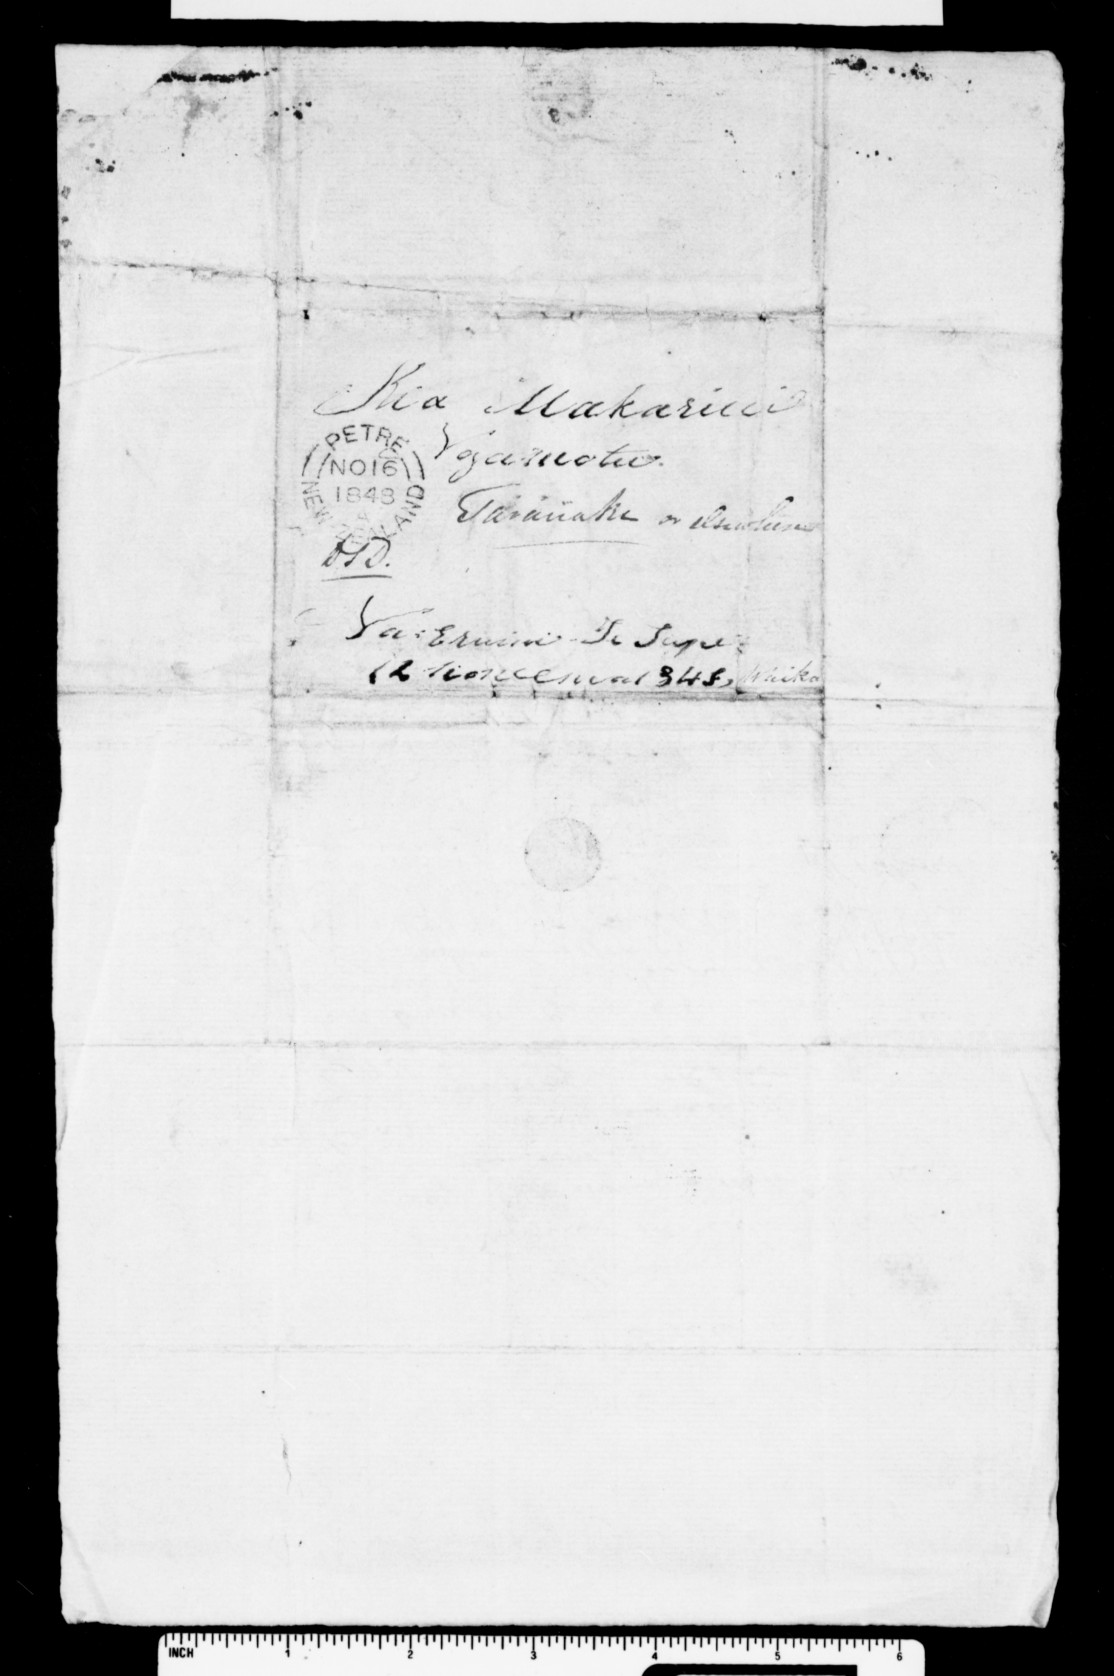 Kia Makarini
PETRE
NO 16
1848
NEW ZEALAND
Ngamotu.
Taranaki or elsewhere
Na Eruini Te Tupe
12
INCH 1 2 3 4 5 6